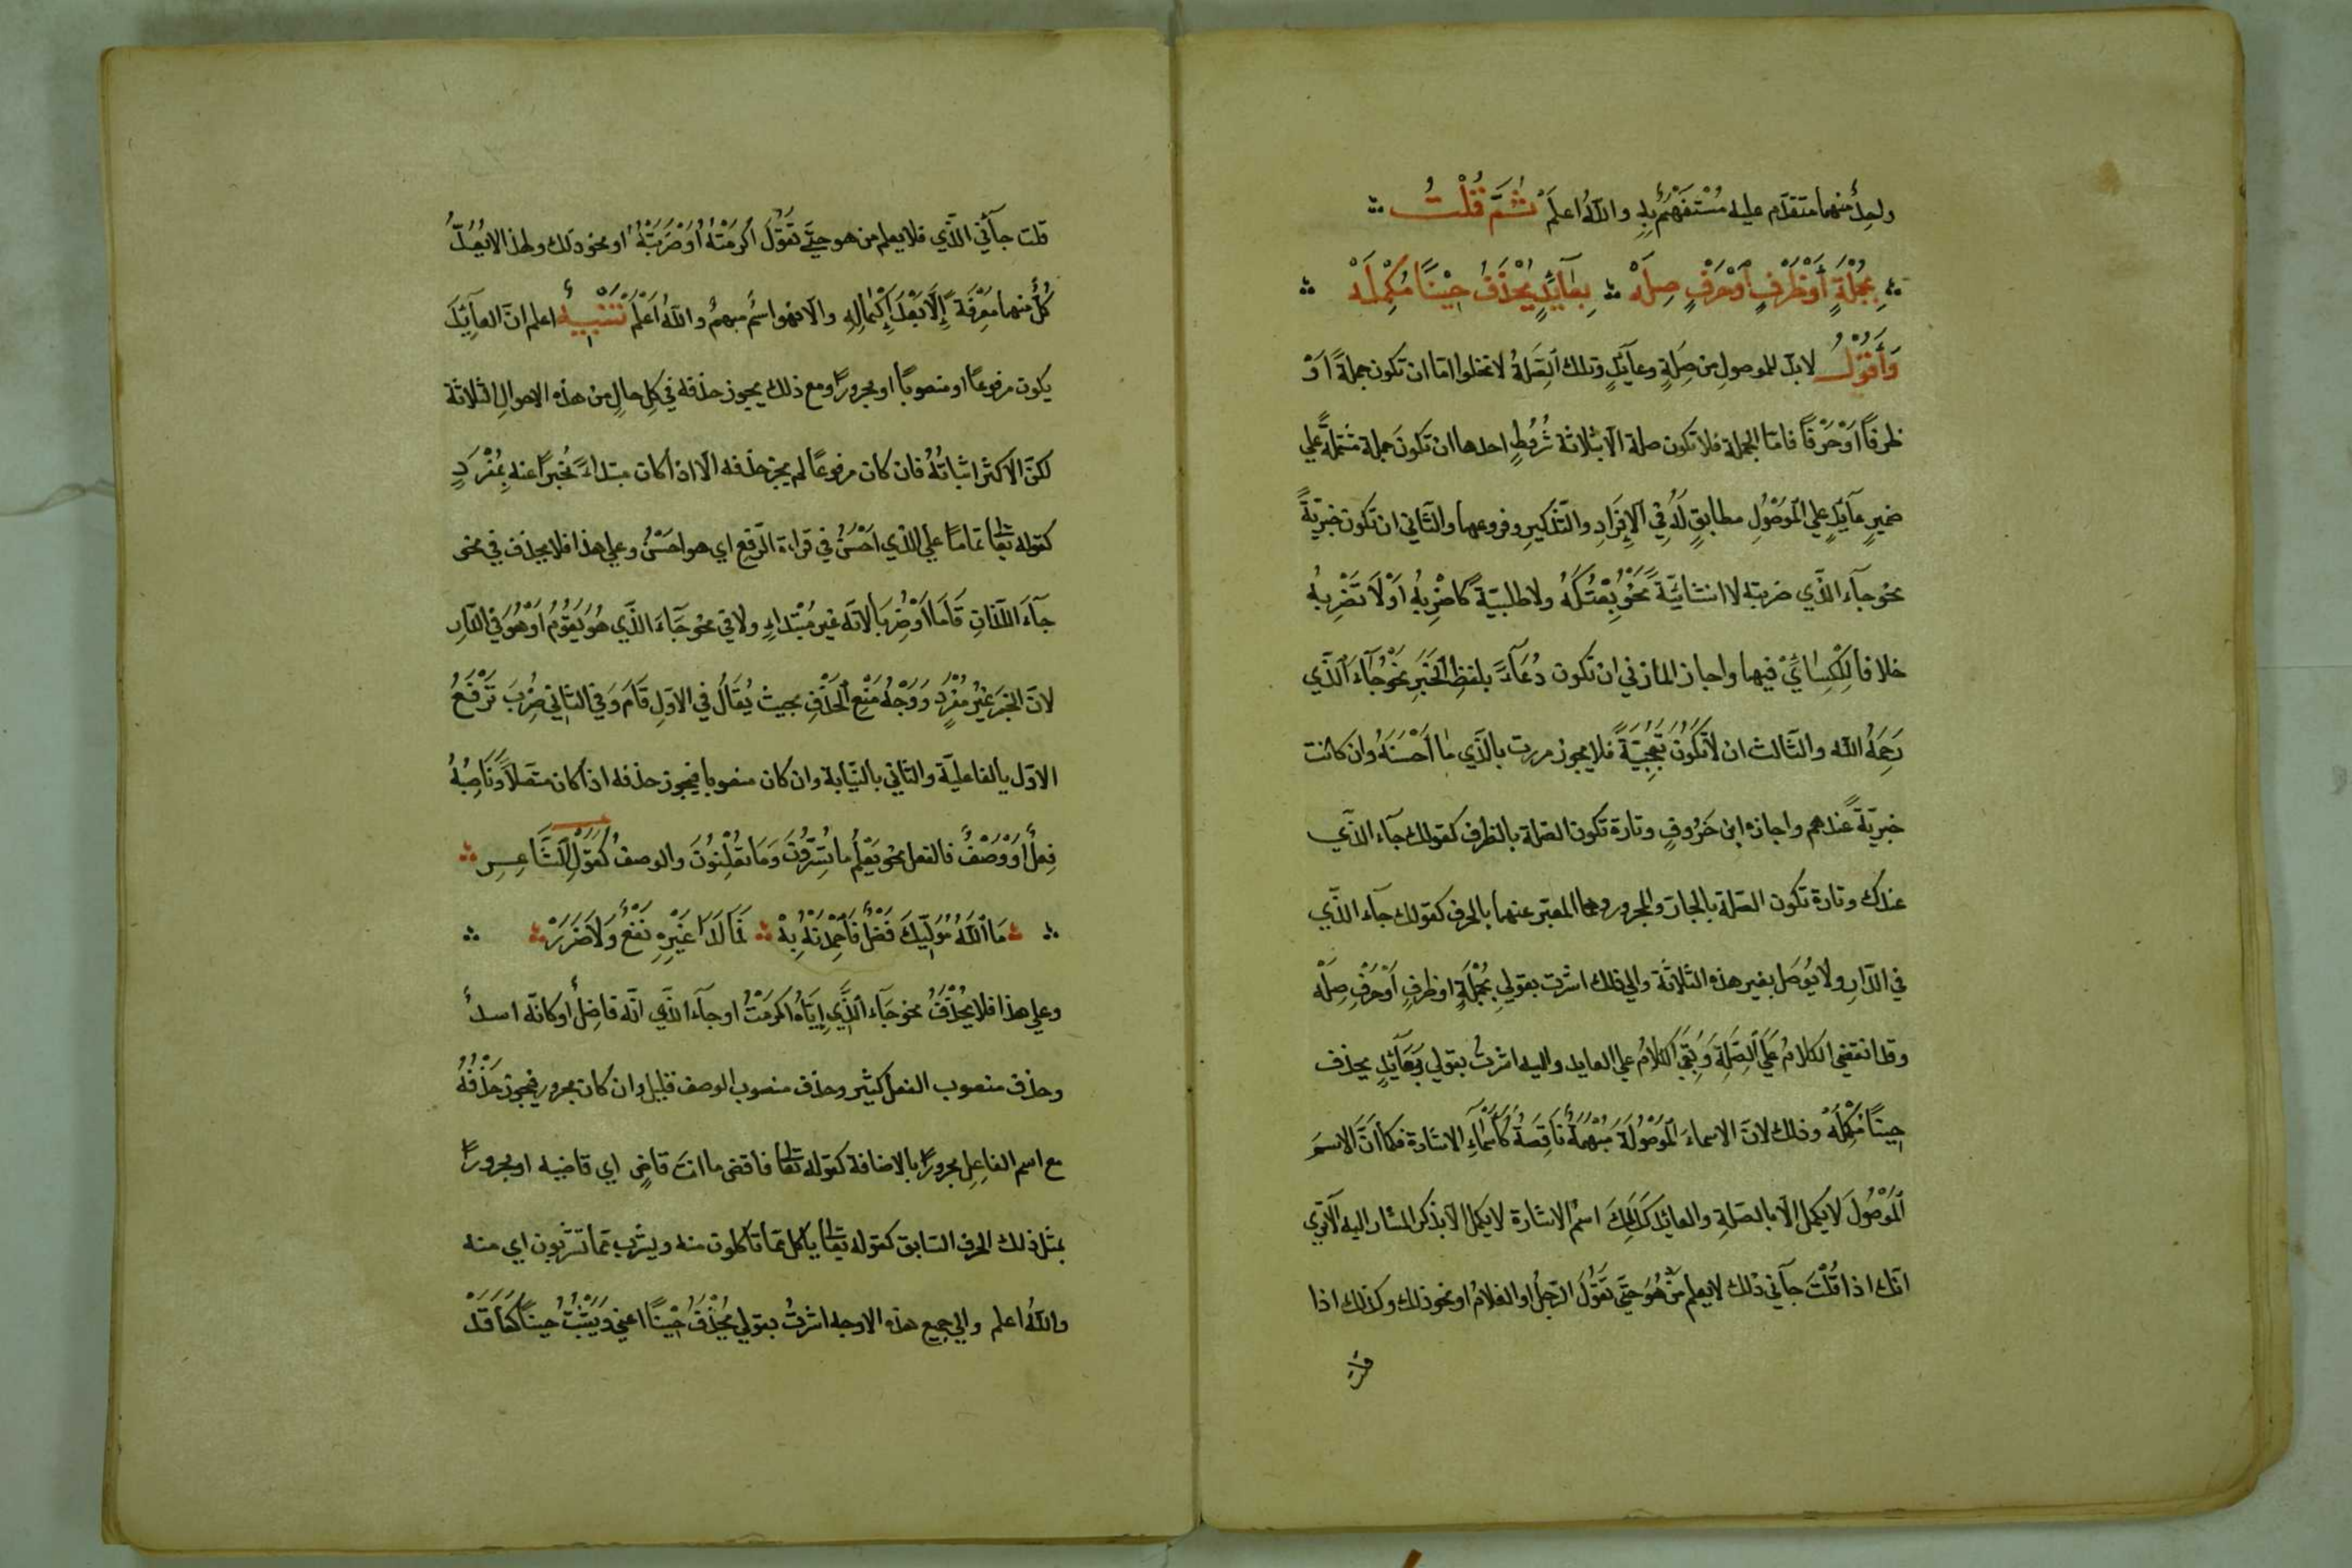 واحدٌ منهما متقدّم عليه مُسْتَفهَمٌ بِهِ والله اعلم ثُمَّ قُلْتُ
بِجُمْلَةٍ أَوْ ظَرْفٍ أَوْ حَرْفٍ صِلَهْ بِعَآئِدٍ يُحْذَفُ حِيْنًا مُكْمِلَهْ
وَأَقُوْلُ لابد للموصول من صِلَةٍ وعآئدٍ وتلك الصِّلَةُ لا تخلوا اما ان تكون جملةً اَوْ
ظرفًا اَوْ حَرْفًا فامّا الجملة فلا تكون صلة الّا بثلاثة شُرُوطٍ احدها ان تكونَ جملة مشتملةً علي
ضميرٍ عآئدٍ علي الْمَوْصُوْلِ مطابقٍ لَهُ فِي الْاِفْرَادِ والتّذكيرِ وفروعهما والثّاني ان تكون خبريّةً
نحو جآء الذّي ضربته لا انشائيّةً نَحْوُ بِعْتُكَهُ ولا طلبيّةً كاضْرِبْهُ اَوْ لَا تَضْرِبْهُ
خلافا لِلْكِسَائِيِّ فيهما واجاز المازني ان تكون دُعَآءً بلفظِ الْخَبَرِ نَحْوُ جَآءَ الَّذِي
رَحِمَهُ الله والثّالث ان لَاتَكُوْنَ تَعَجُّبِيَّةً فلا يجوز مررت بالذّي مَا اَحْسَنَهُ وان كانت
خبريّةً عندهم واجازه ابن خَرُوفٍ وتارة تكون الصّلة بالظرف كقولك جآء الذّي
عندك وتارة تكون الصّلة بالجارّ والمجرور وهما المعبّر عنهما بالحرف كقولك جآء الذّي
في الدّار ولا يُوصَل بغير هذه الثلاثَة والي ذلك اشرت بقولي بِجُمْلَةٍ اوظرفٍ أَوْ حَرْفٍ صِلَهْ
وقد انقضي الكلامُ عَلَي الصِّلَةِ وَبَقِيَ الكَلَامُ علي العايد واليه اشرتُ بقولي بِعَآئِدٍ يحذف
حِينًا مُكْمِلَهْ وذلك لانّ الاسماءَ الْمَوْصُولَةَ مُبْهَمَةٌ نَاقِصَةٌ كَأَسْمَآءِ الاشارة فكما انّ الاسمَ
الْمَوْصُولَ لَايَكْمِلُ الّا بالصّلةِ والعائد كَذَلِكَ اسمُ الاشارة لا يكمل الّا بذكر المشار اليه الَا تَرَي
انّك اذا قُلْتَ جآني ذلك لا يعلم مَنْ هُوَ حَتَّي تَقُوْلَ الرّجلُ او الغلامُ او نحو ذلك وكذلك اذا
قلت
قلت جآئني الذّي فلا يعلم من هو حتَّي تَقُوْلَ اكْرَمْتُهُ اَوْ ضَرَبْتُهُ او نحو ذلك ولهذا لا يُعَدُّ
كُلٌّ منهما مَعْرِفَةً إِلَّا بَعْدَ إِكْمَالِهِ والّا فهو اسمٌ مبهمٌ والله اَعْلَمُ تَنْبِيهٌ اعلم انّ العآئِدَ
يكون مرفوعًا او منصوبًا او مجرورًا ومع ذلك يجوز حذفه في كلِ حالٍ من هذه الاحوالِ الثلاثة
لكنّ الاكثر اثباتُهُ فان كان مرفوعًا لم يجز حذفه الّا اذا كان مبتداءً مُخْبَرًا عنه بِمُفْرَدٍ
كقوله تعالي تمامًا علي الذي اَحْسَنُ في قراءة الرّفع اي هو احسَنُ وعلي هذا فلا يحذف في نحو
جآءَ اللّذانِ قَامَا اَوْ ضُرِبَا لانّه غير مُبْتَداءٍ ولا في نحو جَآءَ الذّي هُوَ يَقُوْمُ اَوْ هُوَ فِي الدّار
لانّ الخبر غَيْرُ مُفْرَدٍ وَوَجْهُ مَنْعِ الْحَذْفِ بحيث يُقَالُ في الاوّلِ قَامَ وَفي الثّاني ضُرِبَ تَرْفَعُ
الاوّل بالفاعليّة والثّاني بالنّيابة وان كان منصوبا فيجوز حذفه اذا كان متّصلًا وَنَاصِبُهُ
فِعلٌ اَوْ وَصْفٌ فالفعل نحو يَعْلَمُ ما تُسِرُّوْنَ وَمَا تُعْلِنُوْنَ والوصفُ كَقَوْلِ الشَّاعِرِ
مَا اللّٰهُ مُوْلِيْكَ فَضْلٌ فَاحْمَدَنْهُ بِهْ فَمَا لَدَا غَيْرِهِ نَفْعٌ وَلَا ضَرَرْ
وعلي هذا فلا يُحْذَفُ نحو جَآءَ الَّذِي إِيَّاهُ اكرمتُ او جآءَ الذّي انّه فاضِلٌ او كانّه اسدٌ
وحذف منصوب الفعل كثير وحذف منصوب الوصف قليل وان كان مجرور فيجوز حَذْفُهُ
مع اسم الفاعِلِ مجرورًا بالاضافة كقوله تعالي فاقض ما انتَ قاضٍ اي قاضيه او مجرورًا
بمثل ذلك الحرف السّابق كقوله تعالي ياكل ممّا تاكلون منه ويشرب ممّا تشربون اي منه
واللّٰهُ اعلم والي جميع هذه الاوجه اشرتُ بقولي يُحْذَفُ حِيْنًا اعني وَيَثْبُتُ حينًا كَمَا قَدْ